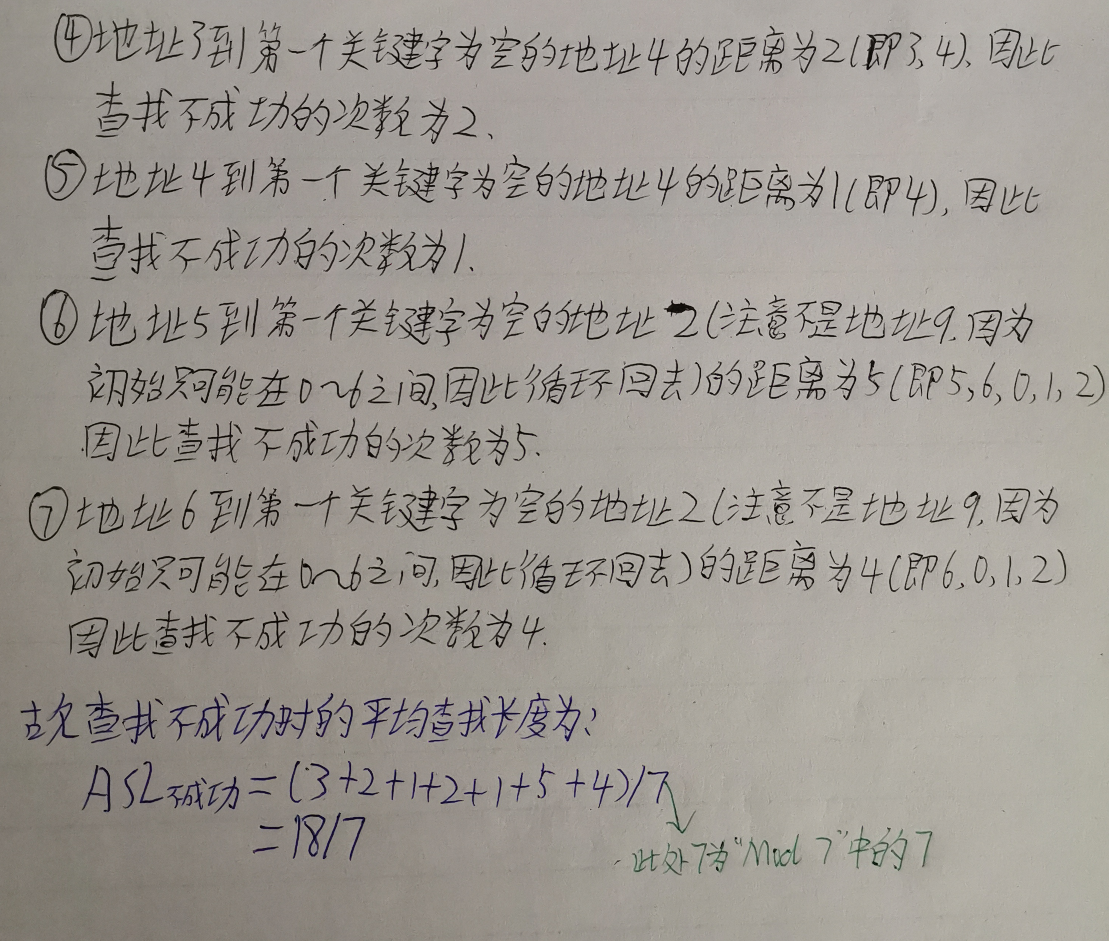 ④地址3到第一个关键字为空的地址4的距离为2(即3,4),因此
查找不成功的次数为2、
⑤地址4到第一个关键字为空的地址4的距离为1(即4),因此
查找不成功的次数为1.
⑥地址5到第一个关键字为空的地址2(注意不是地址9,因为
初始只可能在0~6之间,因此循环回去)的距离为5(即5,6,0,1,2)
因此查找不成功的次数为5.
⑦地址6到第一个关键字为空的地址2(注意不是地址9,因为
初始只可能在0~6之间,因此循环回去)的距离为4(即6,0,1,2)
因此查找不成功的次数为4.
故查找不成功时的平均查找长度为:
ASL不成功=(3+2+1+2+1+5+4)/7
=18/7
此处7为"Mod 7"中的7